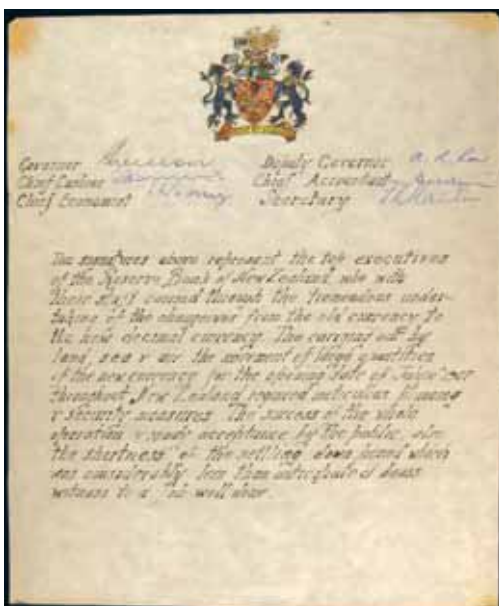 Governor Deputy Governor
Chief Cashier Chief Accountant
Chief Economist Secretary
The signatures above represent the top executives
of the Reserve Bank of New Zealand who with
their staff carried through the tremendous under-
taking of the changeover from the old currency to
the new decimal currency. The carrying out by
land, sea & air the movement of large quantities
of the new currency for the opening date of
throughout New Zealand required meticulous planning
& security measures. The success of the whole
operation & ready acceptance by the public, also
the shortness of the settling down period which
was considerably less than anticipated bears
witness to a job well done.